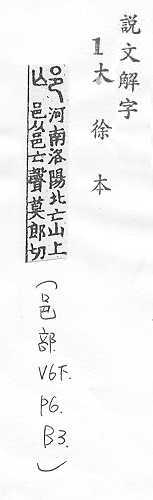 說文解字
1 大徐本
邙 河南洛陽北亡山上
邑从邑亡聲莫郎切
(邑部. V6下. P6. B3.)